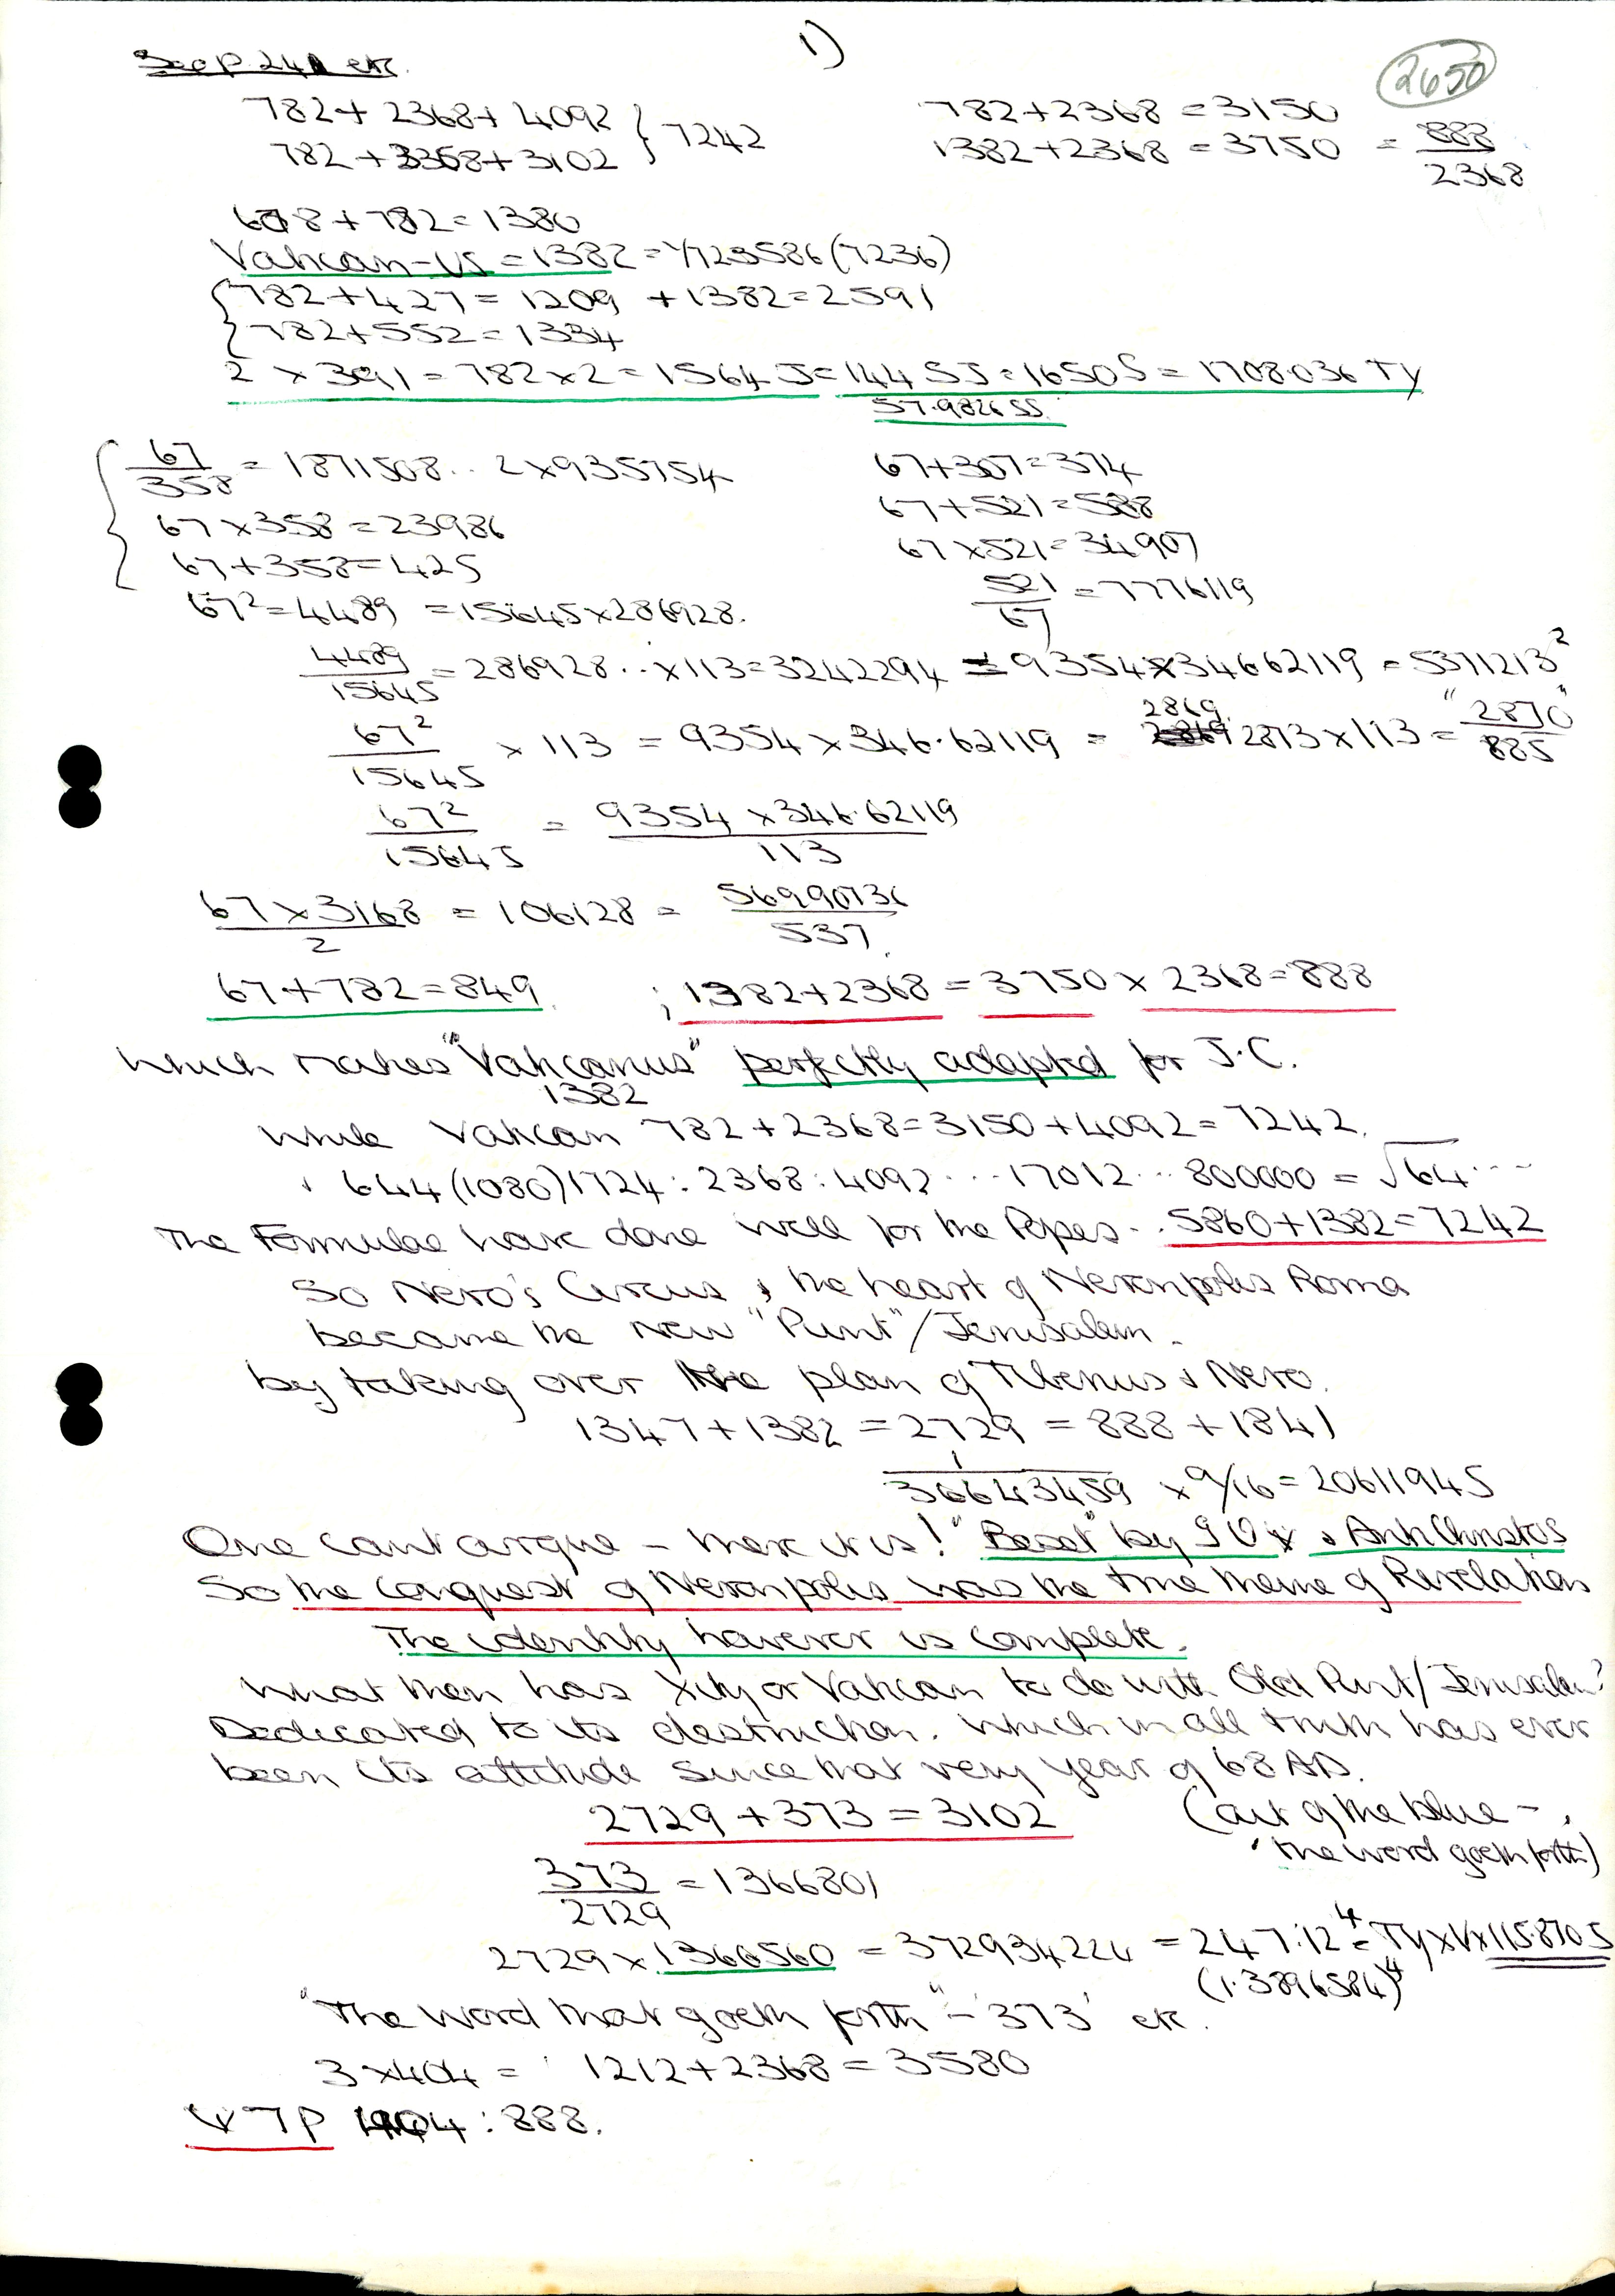 1)
2650
See P 241 etc.
782 + 2368 + 4092 } 7242
782 + 3358 + 3102
782 + 2368 = 3150
1382 + 2368 = 3750 = 888/2368
678 + 782 = 1380
Vatican-us = 1382 = 1/723586 (7236)
{ 782 + 427 = 1209 + 1382 = 2591
782 + 552 = 1334
2 x 391 = 782 x 2 = 1564 J = 144 SJ = 1650 S = 1708.036 Ty
57.9826 SS
{ 67/358 = 1871508.. 2 x 935754
67 x 358 = 23986
67 + 358 = 425
67² = 4489 = 15645 x 286928.
67 + 307 = 374
67 + 521 = 588
67 x 521 = 34907
521/67 = 7776119
4489/15645 = 286928.. x 113 = 3242294 = 9354 x 34662119 = 5371213²
67²/15645 x 113 = 9354 x 346.62119 = 2869. 2873 x 113 = "2870"/885
67²/15645 = 9354 x 346.62119/113
67 x 3168/2 = 106128 = 56990736/537
67 + 782 = 849 ; 1382 + 2368 = 3750 x 2368 = 888
which makes "Vaticanus" perfectly adapted for J.C.
1382
while Vatican 782 + 2368 = 3150 + 4092 = 7242.
644 (1080) 1724 : 2368 : 4092 ... 17012 ... 800000 = √64 ...
The Formulae have done well for the Popes .. 5860 + 1382 = 7242
So Nero's Circus, the heart of Neronpolis Roma
became the new "Punt"/Jerusalem.
by taking over the plan of Tiberius & Nero.
1347 + 1382 = 2729 = 888 + 1841
1/36643459 x 9/16 = 20611945
One cant argue - there it is! "Beast" by 9 0 x & AntiChristos
So the conquest of Neronpolis was the true theme of Revelation
The identity however is complete.
What then has Xity or Vatican to do with Old Punt/Jerusalem?
Dedicated to its destruction. which in all truth has ever
been its attitude since that very year of 68 AD.
2729 + 373 = 3102 (out of the blue -
the word goeth forth)
373/2729 = 1366801
2729 x 1366560 = 372934224 = 247.12 = Ty x V x 115.8705
(1.3896584)⁴
"The word that goeth forth" - '373' etc.
3 x 404 = 1212 + 2368 = 3580
7P 1404 : 888.